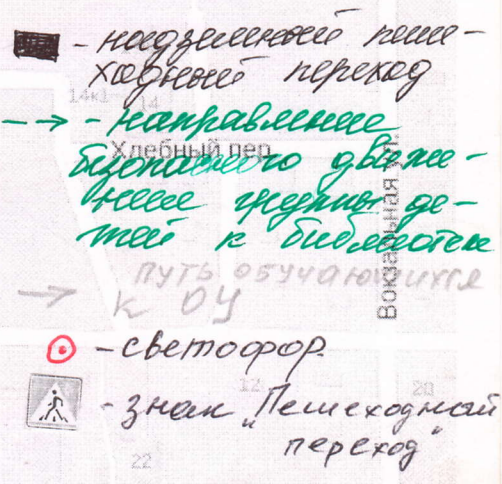 - надземный пеше-
ходный переход
14к1 14
- направление
Хлебный пер.
безопасного движе-
ния группы де-
тей к библиотеке
Вокзальная ул.
путь обучающихся
к ОУ
- светофор.
12
20
- знак „Пешеходный
переход"
22